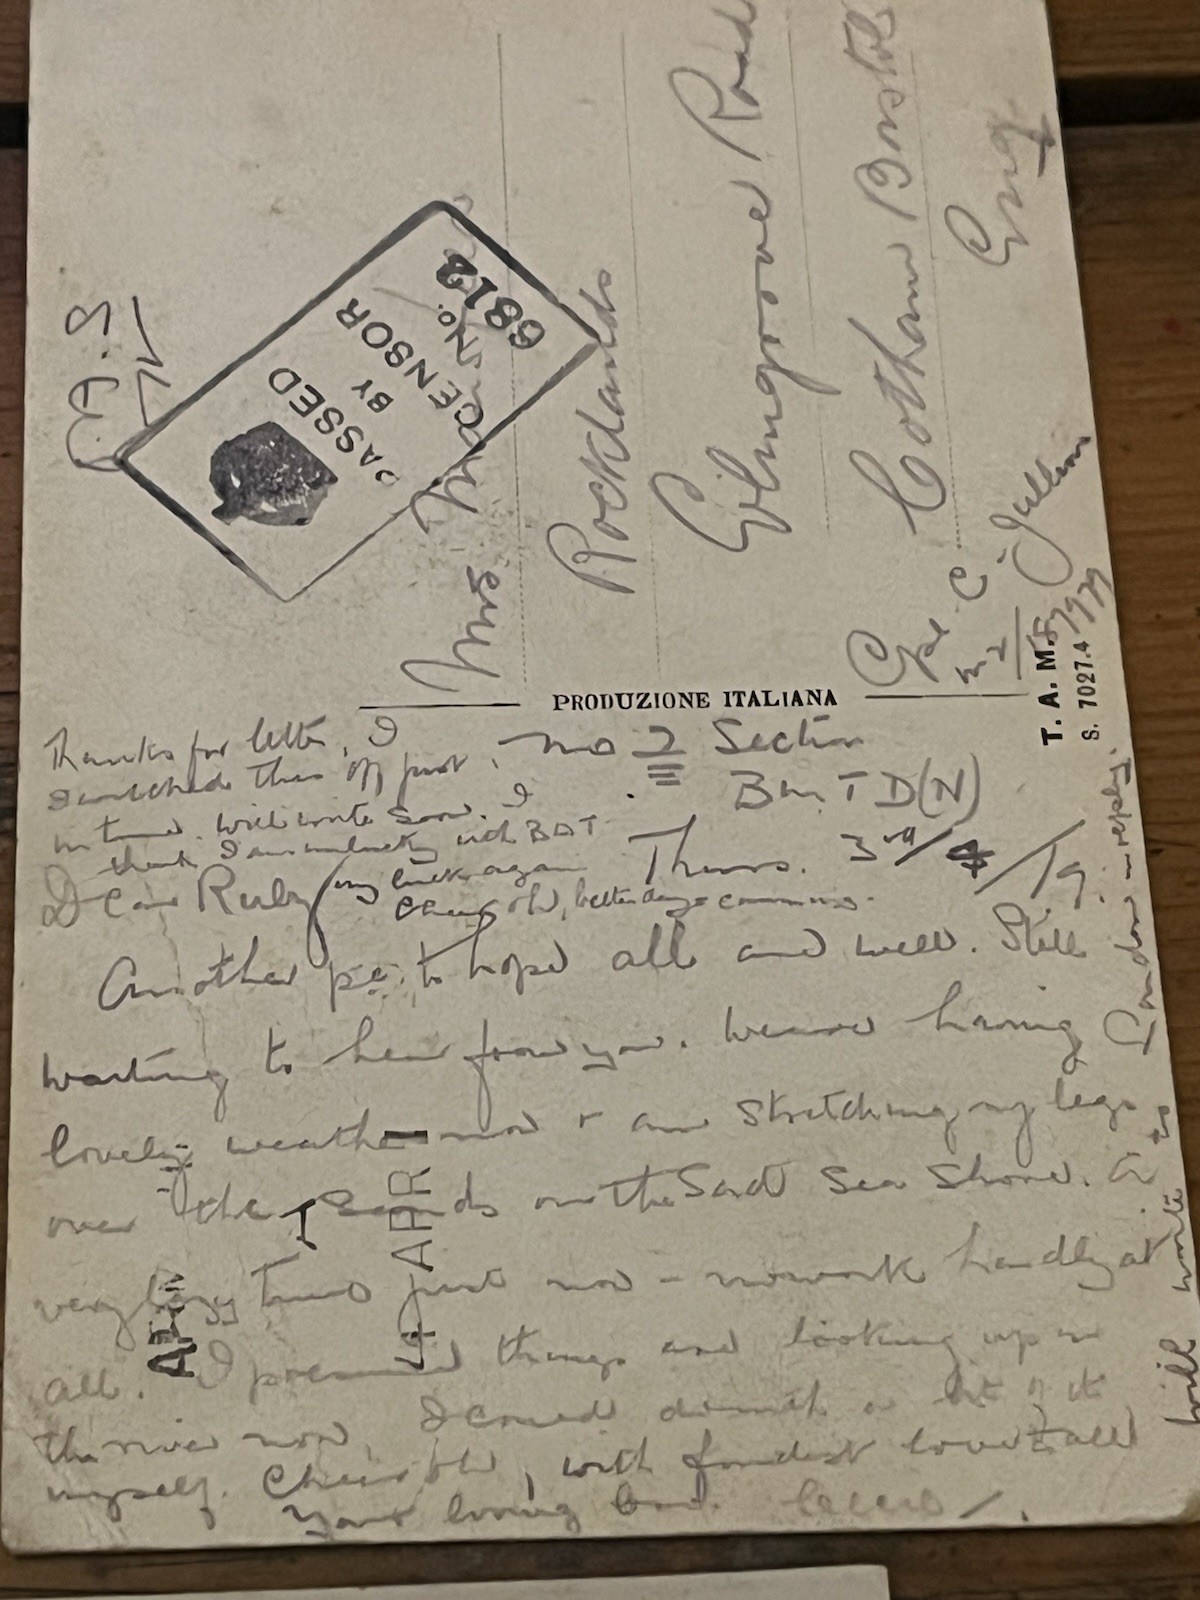 O.A.S
PASSED
BY
CENSOR
No.
6812
Mrs
Rocklands
Road
Cotham Bristol
Eng
Cpl C. Jullion
PRODUZIONE ITALIANA
T. A. M.
S. 7027.4
Thanks for letter, I
snatched this off just
in time. Will write soon. I
think I am unlucky with
my luck again
Cheer oh, better days coming.
No 2 Section
T D(N)
Thurs. 3rd/4/19.
Dear Ruby
Another pc. to hope all are well. Still
waiting to hear from you. We are having
lovely weather now & am stretching my legs
over the sands on the Sea Shore. A
very lazy time just now - no work hardly at
all. I presume things are looking up in
the river now, I could do with a bit of it
myself. Cheer oh, with fondest love to all
Your loving
will write
in reply.